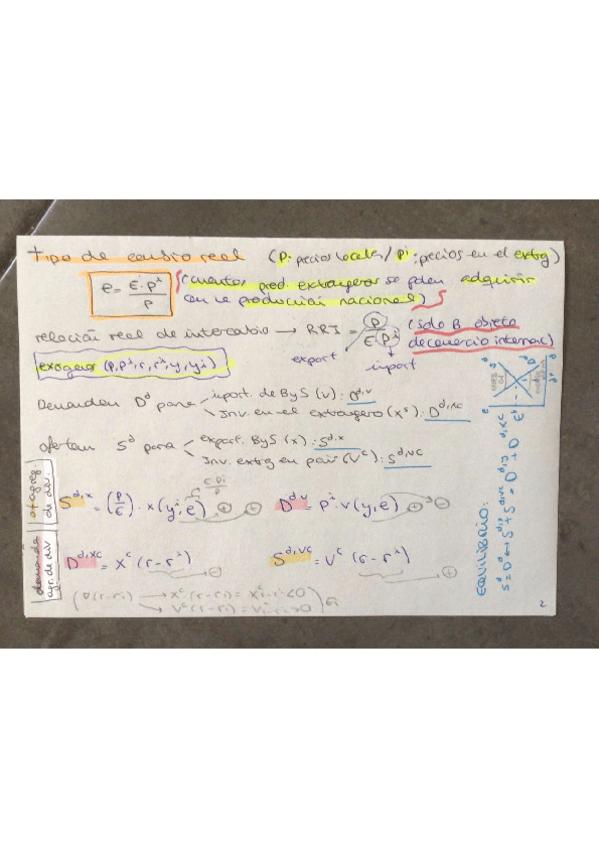 Tipo de cambio real (P: precios locales / Pⁱ: precios en el extrg)
e = E·Pⁱ / P (cuantos prod. extrangeros se pden adquirir
con la producción nacional)
relación real de intercambio → RRI = P / E(Pⁱ) (solo B objeto
de comercio internac)
export import
exogeno (P, Pⁱ, r, rⁱ, y, yⁱ)
Demandan Dᵈ para import. de ByS (V): Dᵈ,ᵛ
Inv. en el extrangero (Xᶜ): Dᵈ,ˣᶜ
Ofertan Sᵈ para export. ByS (X): Sᵈ,ˣ
Inv. extrg en país (Vᶜ): Sᵈ,ᵛᶜ
E·Pi / P
of agreg de div.
Sᵈ,ˣ = (P/E) · x(yⁱ, e) + +
Dᵈ,ᵛ = Pⁱ · v(y, e) + -
demanda agr. de div
Dᵈ,ˣᶜ = Xᶜ(r-rⁱ) -
Sᵈ,ᵛᶜ = Vᶜ(r-rⁱ) +
→ Xᶜ(r-ri) =
→ Vᶜ(r-ri) =
EQUILIBRIO:
2